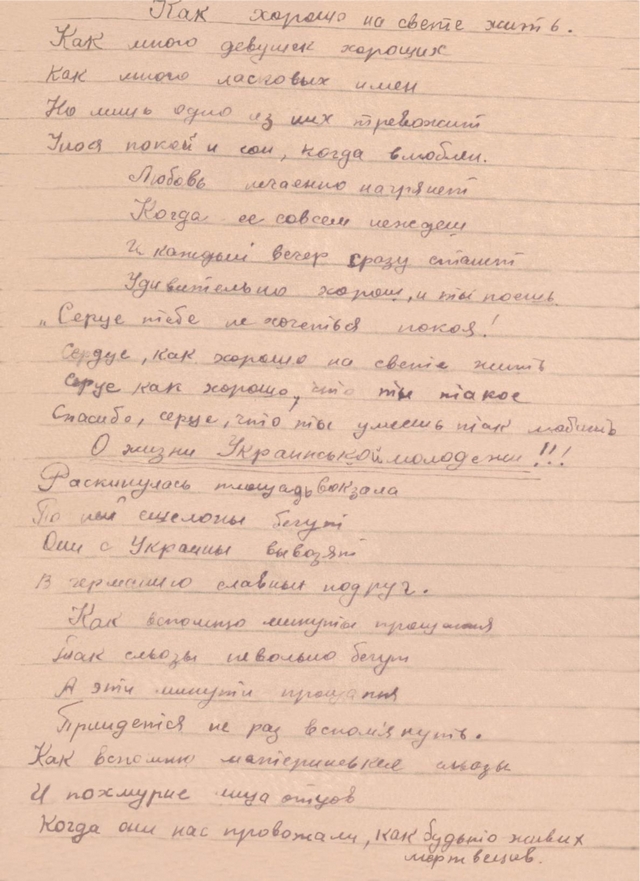 Как хорошо на свете жить.
Как много девушек хороших
Как много ласковых имен
Но лишь одно из них тревожит
Унося покой и сон, когда влюблен.
Любовь нечаенно нагрянет
Когда ее совсем неждеш
И каждый вечер сразу станет
Удивительно хорош, и ты поешь
„Серце тебе не хочеться покоя!
Сердце, как хорошо на свете жить
Серце как хорошо, что ты такое
Спасибо, серце, что ты умеешь так любить
О жизни Украинськой молодежи!!!
Раскинулась площадь вокзала
По ный ешелоны бегут
Они с Украины вывозят
В германию славных подруг.
Как вспомню минуты прощания
Так сльозы невольно бегут
А эти минути прощання
Придется не раз вспом'януть.
Как вспомню материнские сльозы
И похмурие лица отцов
Когда они нас провожали, как будьто живих
мертвецов.